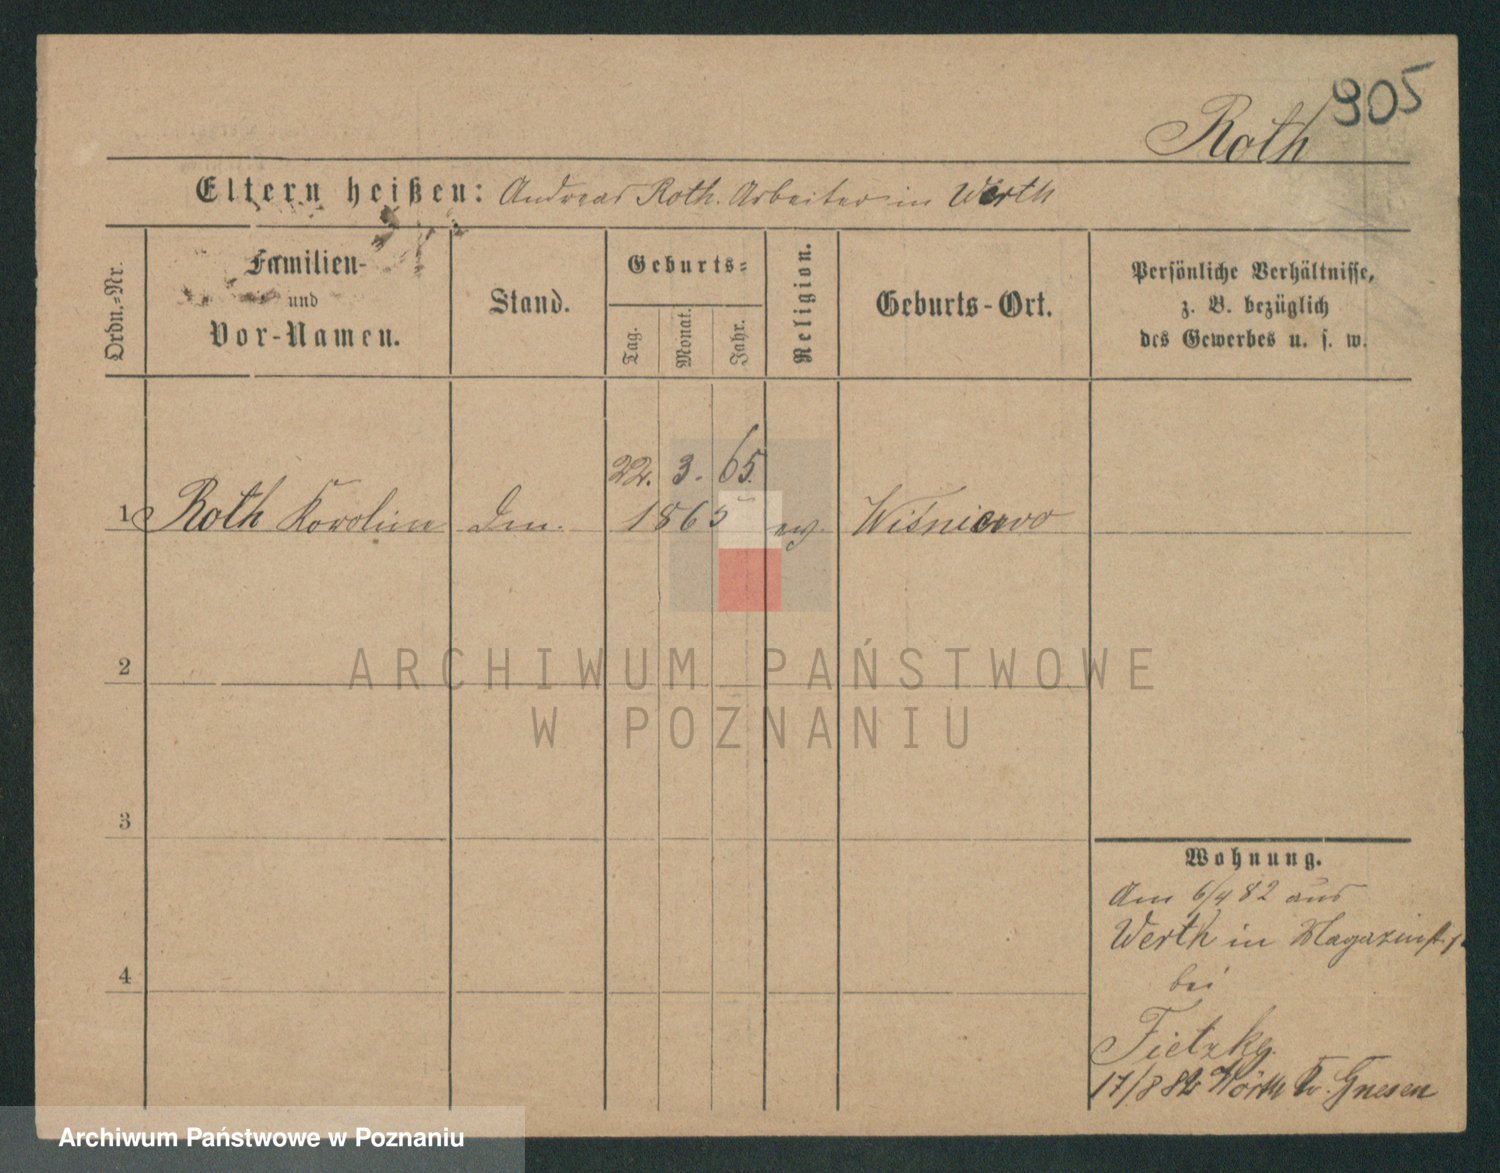 905
Roth
Eltern heißen: Andreas Roth. Arbeiter in Werth
Ordn.=Nr.
Familien-
und
Vor-Namen.
Stand.
Geburts=
Tag.
Monat.
Jahr.
Religion.
Geburts-Ort.
Persönliche Verhältnisse,
z. B. bezüglich
des Gewerbes u. s. w.
22. 3. 65.
1 Roth Karolina 1865 ev. Wiśniewo
2
ARCHIWUM PAŃSTWOWE
W POZNANIU
3
Wohnung.
Am 6/4 82 aus
Werth in Magazinst.
4
bei
Fietzky
17/8 82 Wörth Kr. Gnesen
Archiwum Państwowe w Poznaniu